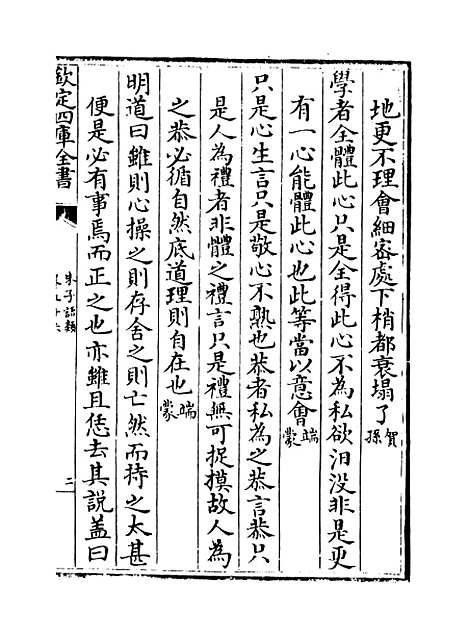 地更不理會細密處下梢都衰塌了賀孫
學者全體此心只是全得此心不為私欲汨没非是更
有一心能體此心也此等當以意會端蒙
只是心生言只是敬心不熟也恭者私為之恭言恭只
是人為禮者非體之禮言只是禮無可捉摸故人為
之恭必循自然底道理則自在也端蒙
明道曰雖則心操之則存舍之則亡然而持之太甚
便是必有事焉而正之也亦雖且恁去其說盖曰
欽定四庫全書
朱子語類
卷九十六
二